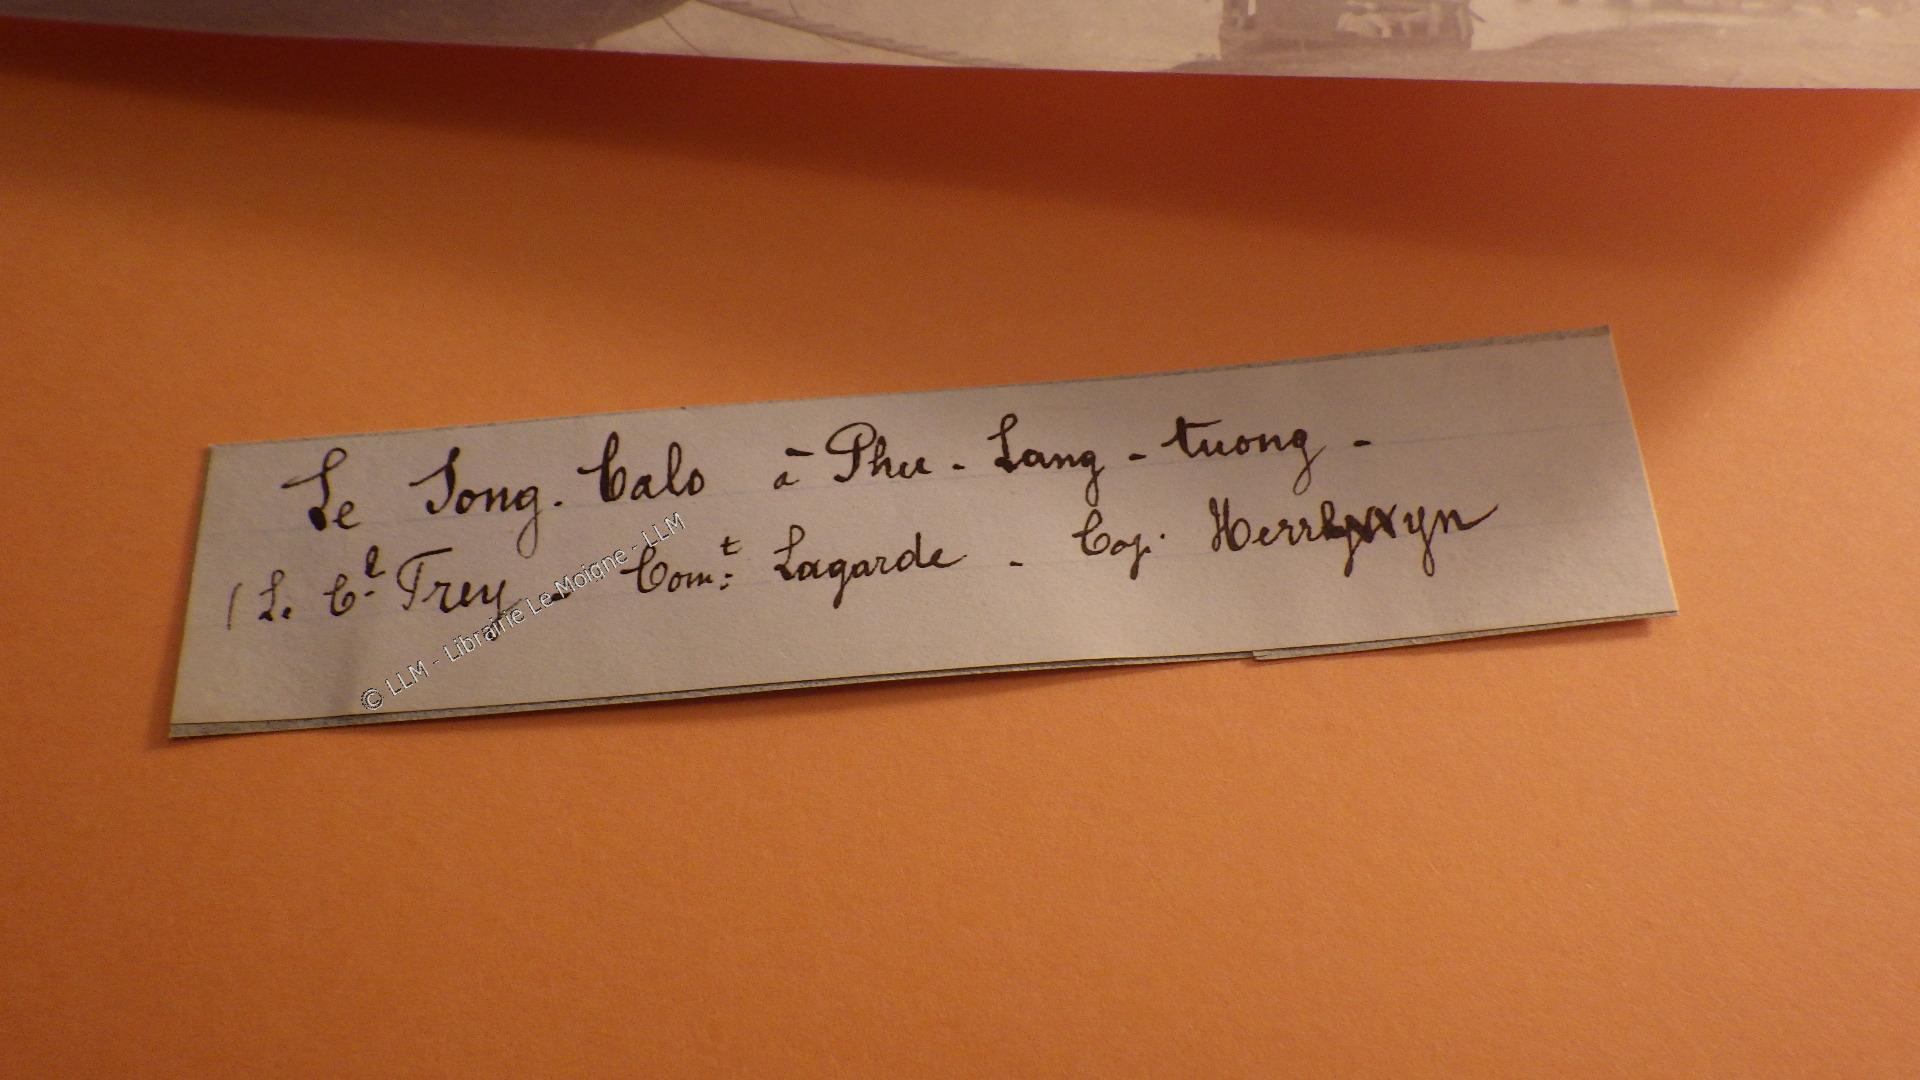 Le Song-Calo à Phu-Lang-tuong-
(Le Cel Frey - Comt: Lagarde - Cap.
© LLM - Librairie Le Moigne - LLM